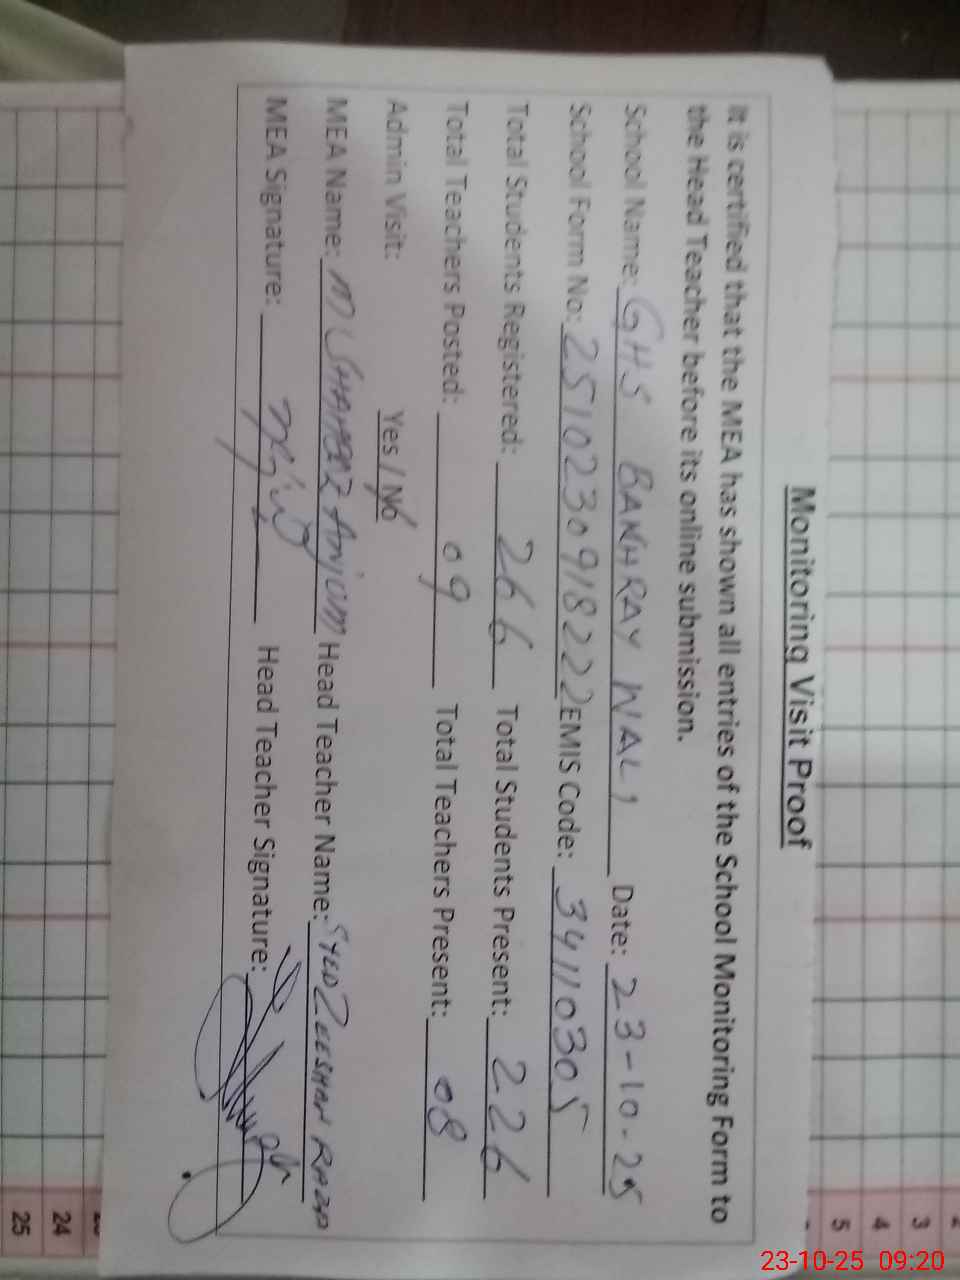 Monitoring Visit Proof
It is certified that the MEA has shown all entries of the School Monitoring Form to
the Head Teacher before its online submission.
School Name: GHS BAKHRAY WALI Date: 23-10-25
School Form No: 2510230918222 EMIS Code: 34110305
Total Students Registered: 266 Total Students Present: 226
Total Teachers Posted: 09 Total Teachers Present: 08
Admin Visit: Yes / No
MEA Name: M SHAHBAZ Anjum Head Teacher Name: SYED ZEESHAN RAZA
MEA Signature: Head Teacher Signature:
3
4
5
24
25
23-10-25 09:20